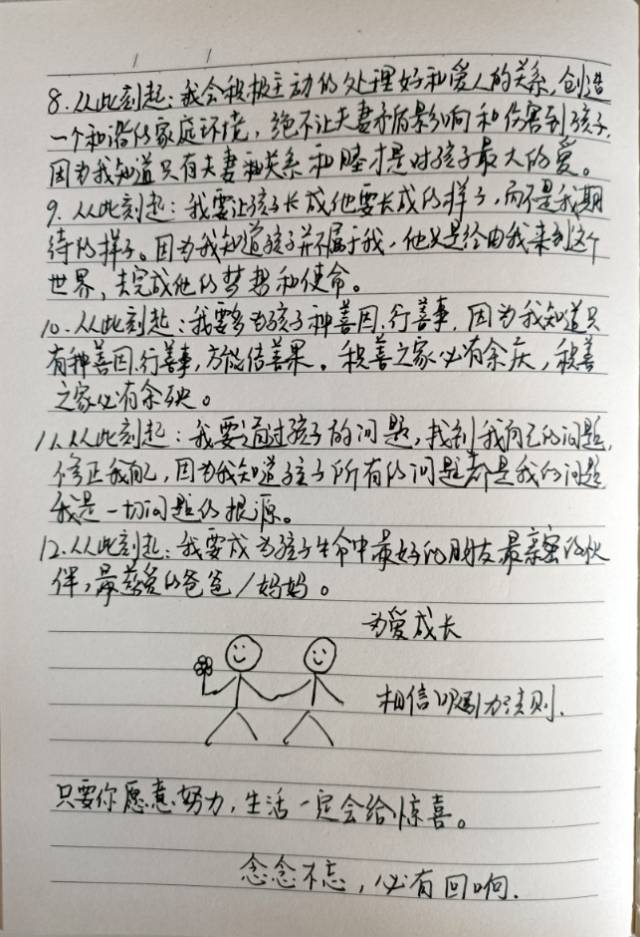 8.从此刻起:我会积极主动的处理好和爱人的关系,创造
一个和谐的家庭环境,绝不让夫妻矛盾影响和伤害到孩子.
因为我知道只有夫妻和关系和睦才是对孩子最大的爱。
9.从此刻起:我要让孩子长成他要长成的样子,而不是我期
待的样子。因为我知道孩子并不属于我,他只是经由我来到这个
世界,去完成他的梦想和使命。
10.从此刻起:我要多为孩子种善因.行善事,因为我知道只
有种善因.行善事,方能结善果。积善之家必有余庆,积善
之家必有余殃。
11.从此刻起:我要通过孩子的问题,找到我自己的问题,
修正我自己,因为我知道孩子所有的问题都是我的问题
我是一切问题的根源。
12.从此刻起:我要成为孩子生命中最好的朋友最亲密的伙
伴,最慈爱的爸爸/妈妈。
为爱成长
相信吸引力法则.
只要你愿意努力,生活一定会给惊喜。
念念不忘,必有回响.